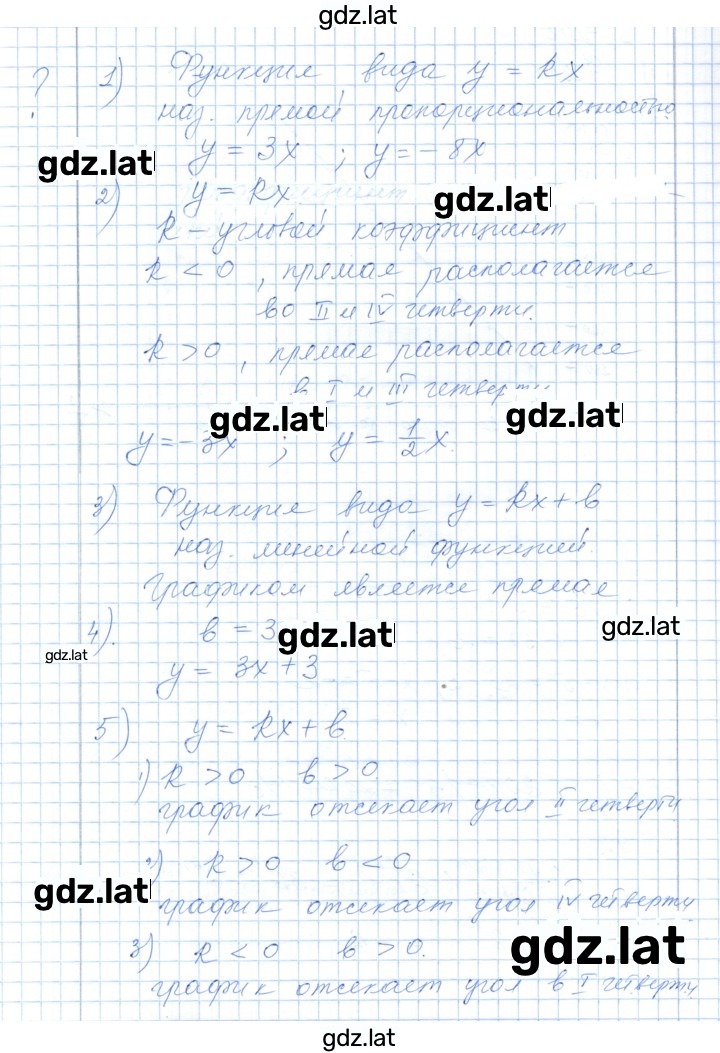 gdz.lat
? 1) Функция вида y = kx
наз. прямой пропорциональностью.
gdz.lat
y = 3x ; y = - 8x
2) y = kx
gdz.lat
k – угловой коэффициент
k < 0 , прямая располагается
во II и IV четверти.
k > 0 , прямая располагается
в I и III четверти
gdz.lat gdz.lat
y = - 3x ; y = 1/2 x.
3) Функция вида y = kx + b
наз. линейной функцией.
Графиком является прямая
4). b = 3
gdz.lat gdz.lat
gdz.lat
y = 3x + 3
5) y = kx + b
1) k > 0 b > 0
график отсекает угол II четверти
2) k > 0 b < 0
gdz.lat
график отсекает угол IV четверти
3) k < 0 b > 0.
gdz.lat
график отсекает угол в I четверти
gdz.lat